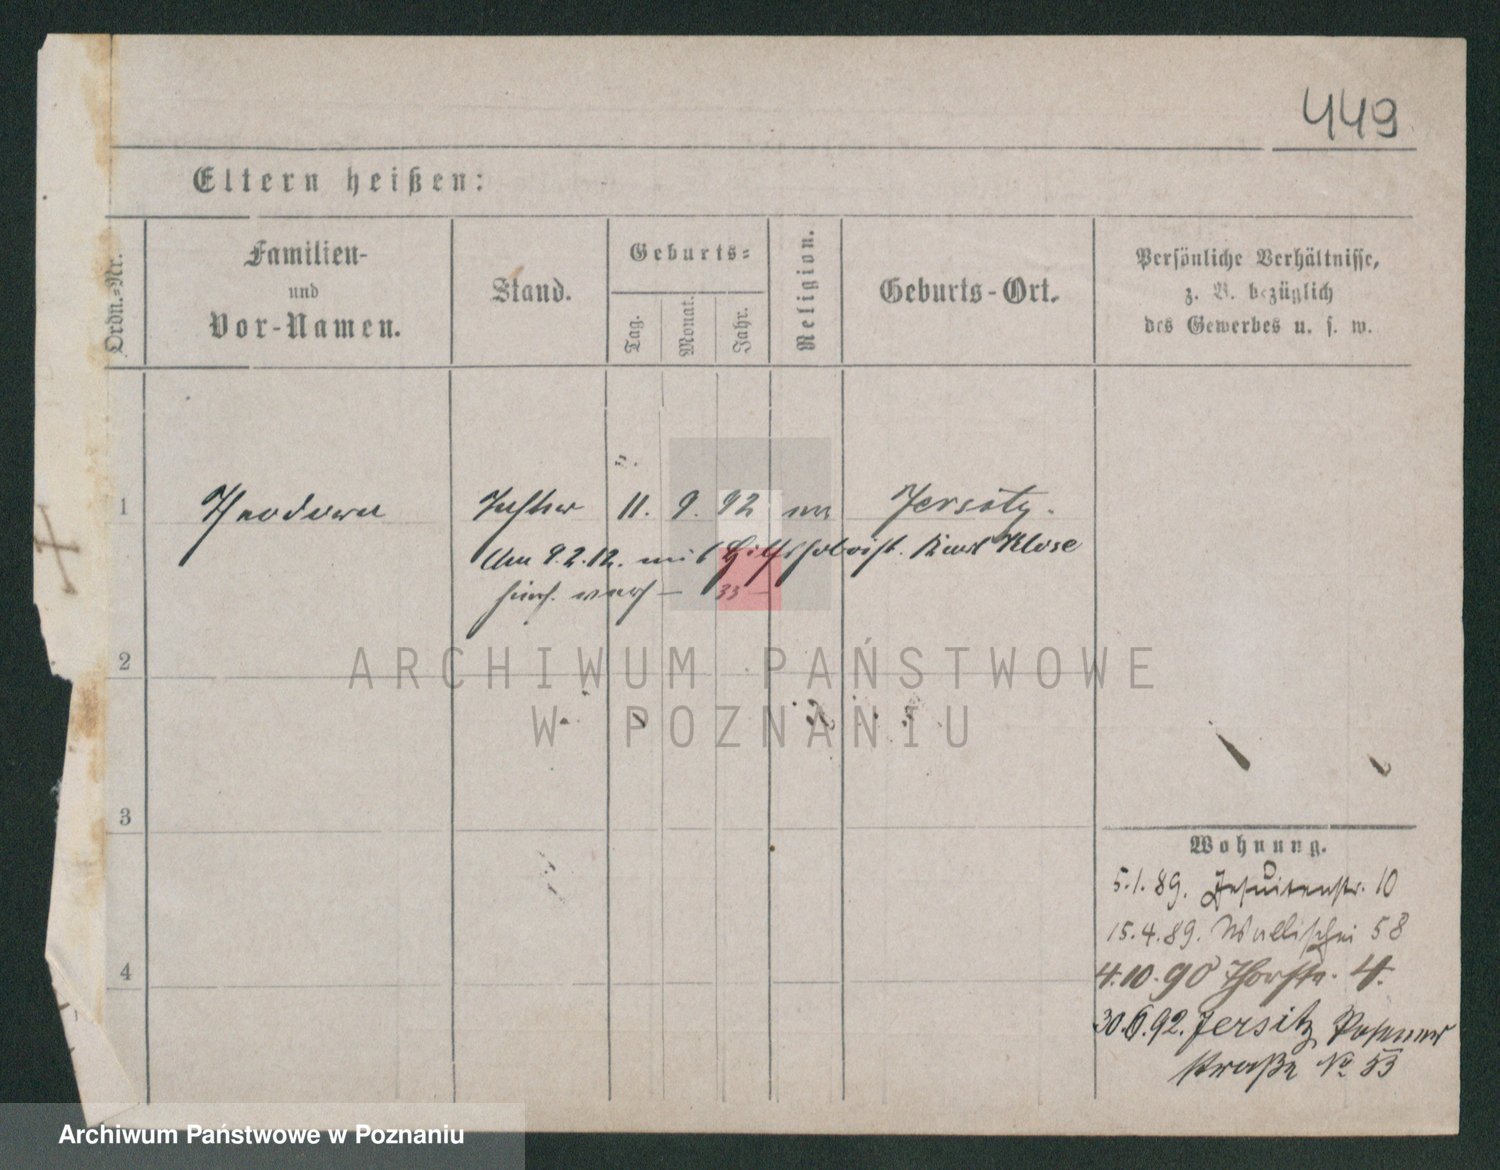 449
Eltern heißen:
Ordn.-Nr.
Familien-
und
Vor-Namen.
Stand.
Geburts-
Tag.
Monat.
Jahr.
Religion.
Geburts-Ort.
Persönliche Verhältnisse,
z. B. bezüglich
des Gewerbes u. s. w.
1 Theodora Tochter 11. 9. 92 Jersitz.
Am 9.2.12. mit Karl Klose
hier verh — 33 —
2
ARCHIWUM PAŃSTWOWE
W POZNANIU
3
4
Wohnung.
5.1.89. Jesuitenstr. 10
15.4.89. Wallischei 58
4.10.90 Thorstr. 4.
30.6.92. Jersitz, Posener
straße No 53
Archiwum Państwowe w Poznaniu